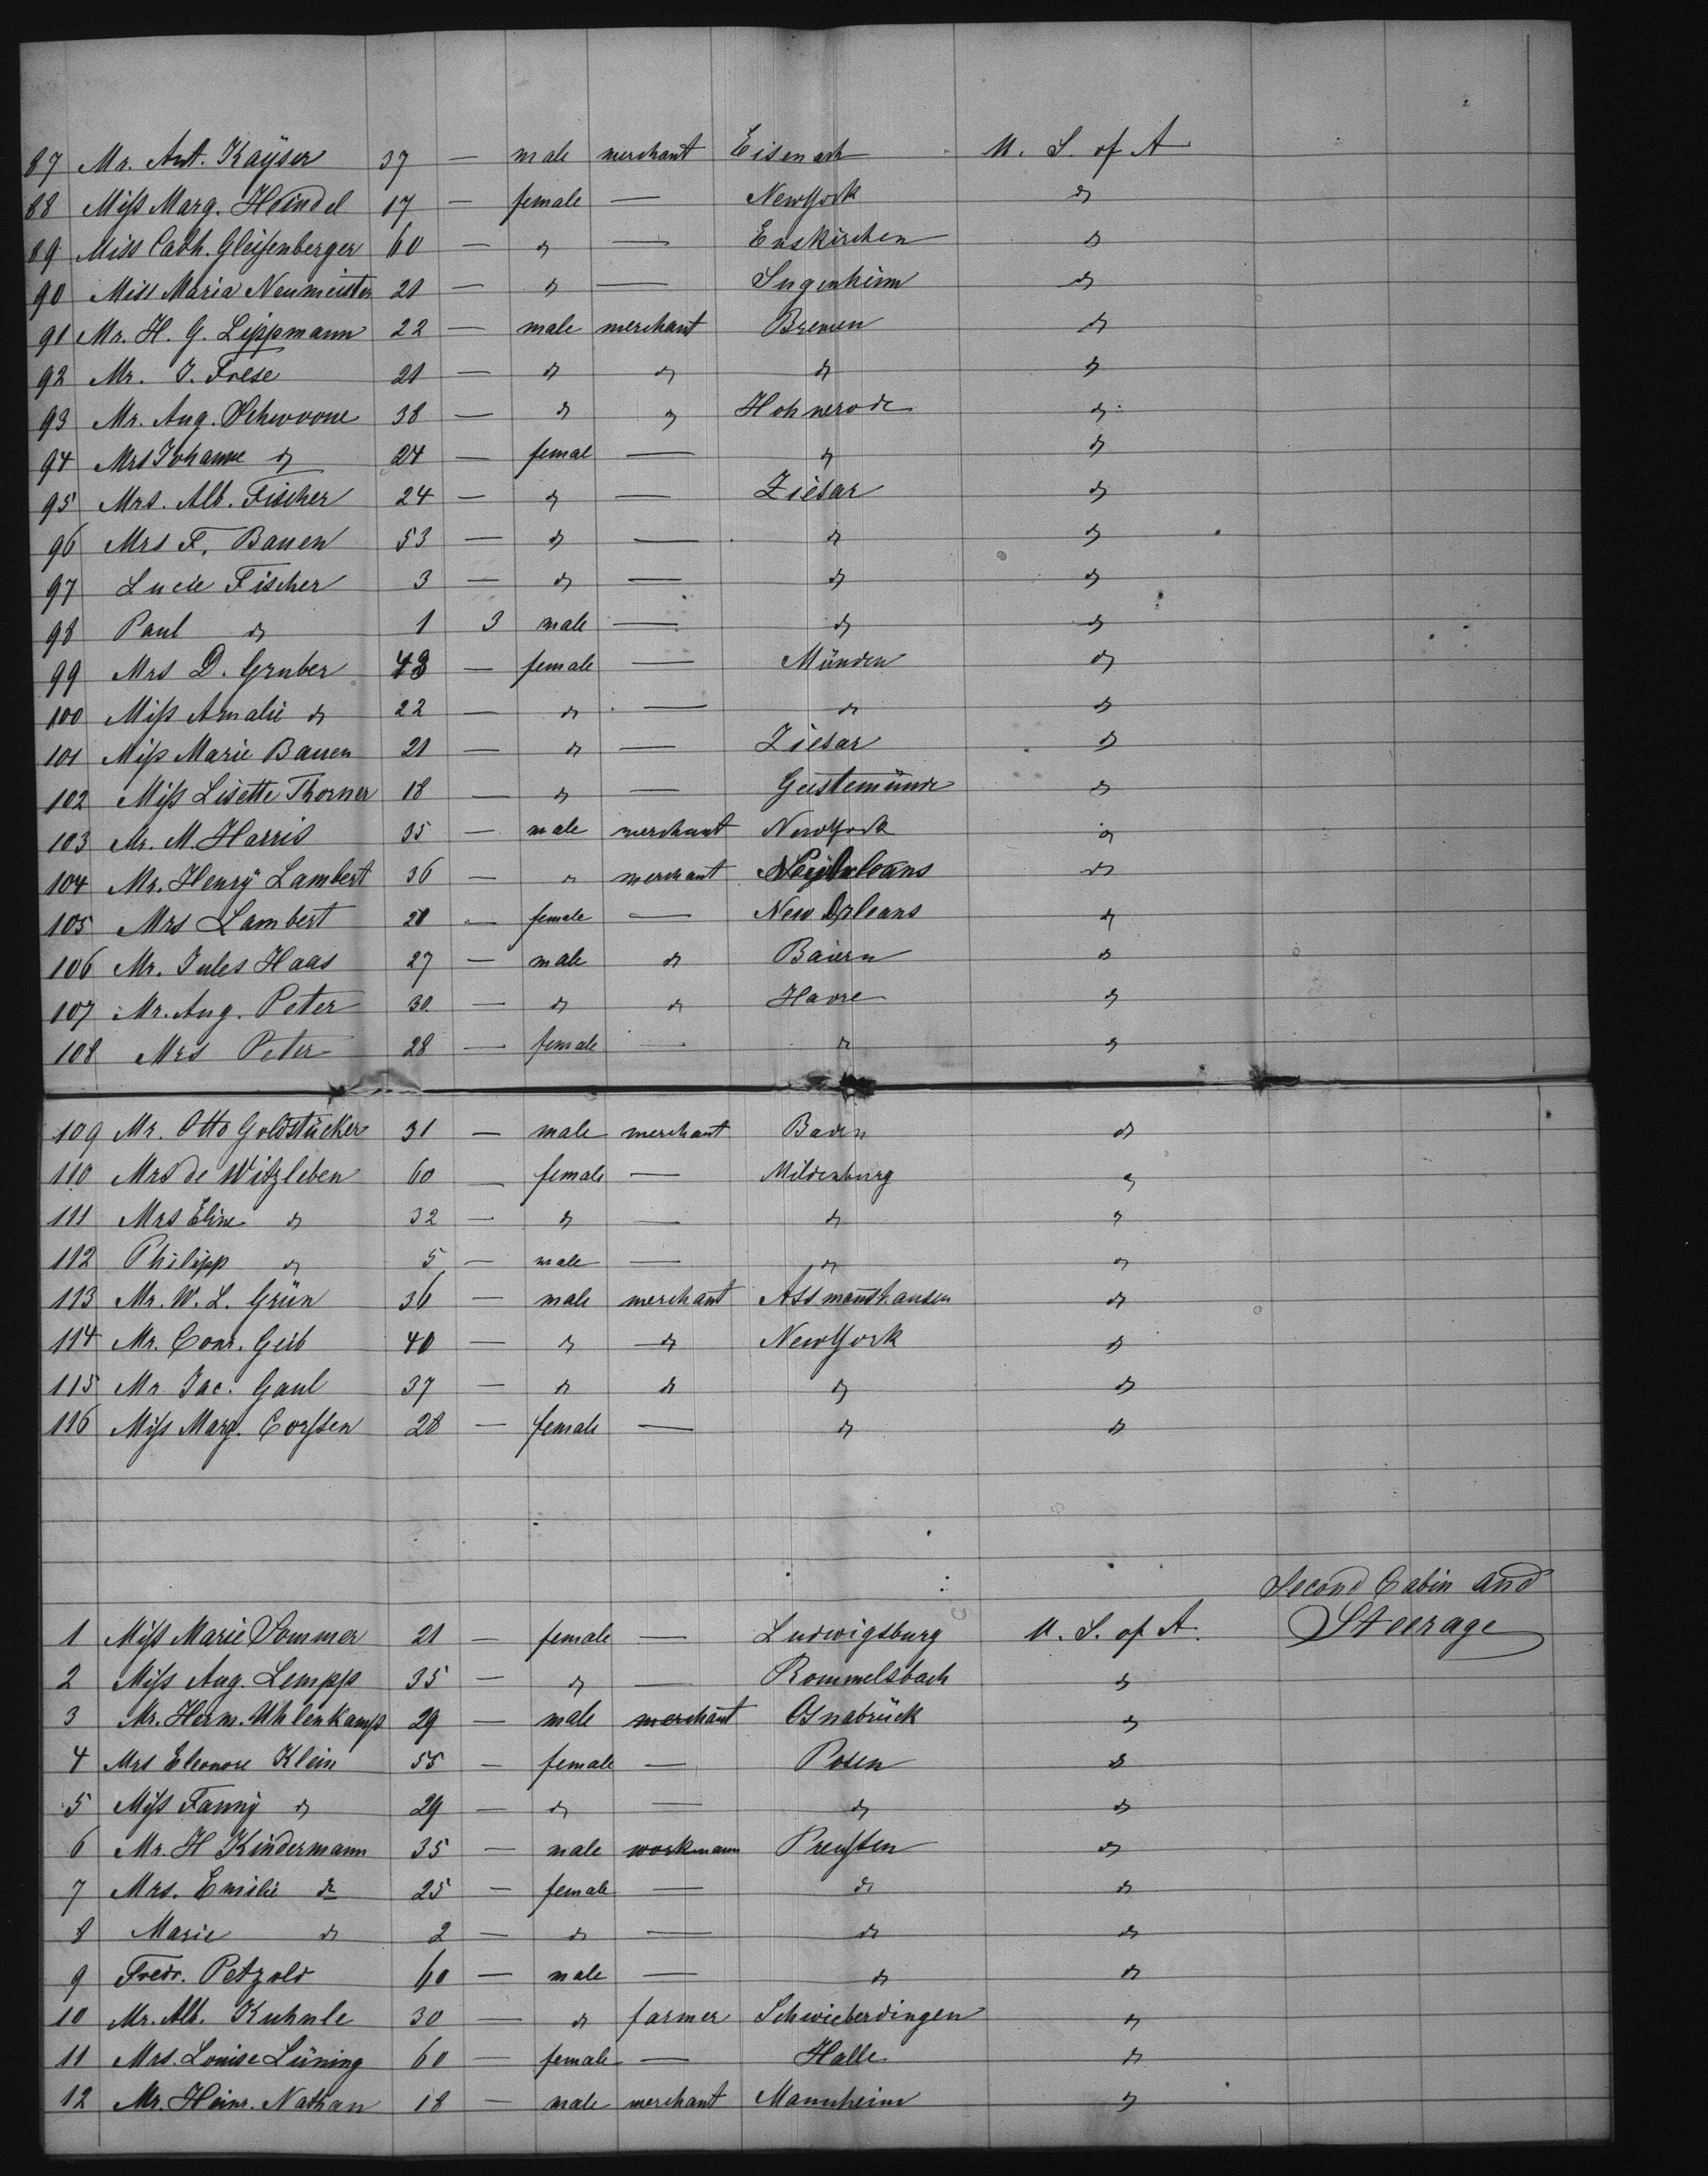 87 Mr. Ant. Kaÿser 37 — male merchant Eisenach U. S. of A
88 Miss Marg. Heindel 17 — female — NewYork do
89 Miss Cath. Gleissenberger 60 — do — Enskirchen do
90 Miss Maria Neumeister 21 — do — Sugenheim do
91 Mr. H. G. Lippmann 22 — male merchant Bremen do
92 Mr. J. Frese 21 — do do do do
93 Mr. Aug. 38 — do do Hohnerode do
94 Mrs Johanne do 24 — femal — do do
95 Mrs. Alb. Fischer 24 — do — Ziesar do
96 Mrs F. Bauen 53 — do — do do
97 Lucie Fischer 3 — do — do do
98 Paul do 1 3 male — do do
99 Mrs D. Gruber 43 — female — Münden do
100 Miss Amalie do 22 — do — do do
101 Miss Marie Bauen 21 — do — Ziesar do
102 Miss Lisette Thorner 18 — do — Geestemünde do
103 Mr. M. Harris 35 — male merchant NewYork do
104 Mr. Henrÿ Lambert 36 — do merchant Orleans do
105 Mrs Lambert 28 — female — New Orleans do
106 Mr. Jules Haas 27 — male do Baiern do
107 Mr. Aug. Peter 30 — do do Havre do
108 Mrs Peter 28 — female — do do
109 Mr. Otto Goldstücker 31 — male merchant Baden do
110 Mrs de Witzleben 60 — female — Mildenburg do
111 Mrs Eline do 32 — do — do do
112 Philipp do 5 — male — do do
113 Mr. W. L. Grün 36 — male merchant Assmannshausen do
114 Mr. Conr. Geib 40 — do do NewYork do
115 Mr Jac. Gaul 37 — do do do do
116 Miss Marg. Corssen 28 — female — do do
Second Cabin and
1 Miss Marie Sommer 21 — female — Ludwigsburg U. S. of A. Steerage
2 Miss Aug. Lempp 35 — do — Rommelsbach do
3 Mr. Herm. Uhlenkamp 29 — male merchant Osnabrück do
4 Mrs Eleonore Klein 55 — female — Posen do
5 Miss Fannÿ do 29 — do — do do
6 Mr. H Kindermann 35 — male workmann Preussen do
7 Mrs. Emilie do 25 — female — do do
8 Marie do 2 — do — do do
9 Fredr. Petzold 60 — male — do do
10 Mr. Alb. Kuhnle 30 — do farmer Schwieberdingen do
11 Mrs. Louise Lüning 60 — female — Halle do
12 Mr. Heinr. Nathan 18 — male merchant Mannheim do